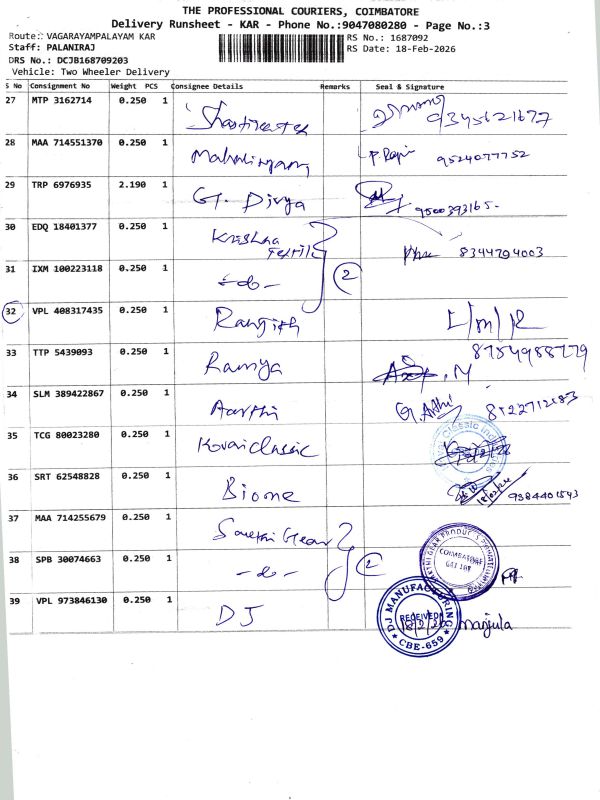 THE PROFESSIONAL COURIERS, COIMBATORE
Delivery Runsheet - KAR - Phone No.:9047080280 - Page No.:3
Route: VAGARAYAMPALAYAM KAR RS No.: 1687092
Staff: PALANIRAJ RS Date: 18-Feb-2026
DRS No.: DCJB168709203
Vehicle: Two Wheeler Delivery
S No Consignment No Weight PCS Consignee Details Remarks Seal & Signature
27 MTP 3162714 0.250 1 9345621677
28 MAA 714551370 0.250 1 Mahalingam P. Raji 9524077752
29 TRP 6976935 2.190 1 GT. Divya 9500393165-
30 EDQ 18401377 0.250 1 Krishna Textile 8344294003
31 IXM 100223118 0.250 1 -do- 2
32 VPL 408317435 0.250 1 Rangith L/m/R
33 TTP 5439093 0.250 1 Ramya 8754988779
34 SLM 389422867 0.250 1 Aarthi 8122712183
35 TCG 80023280 0.250 1 Kovai Classic
36 SRT 62548828 0.250 1 Biome 9384401543
37 MAA 714255679 0.250 1
38 SPB 30074663 0.250 1 -do- 2 COIMBATORE
39 VPL 973846130 0.250 1 DJ DJ MANUFACTURING RECEIVED CBE-659 18/2/26 Manjula